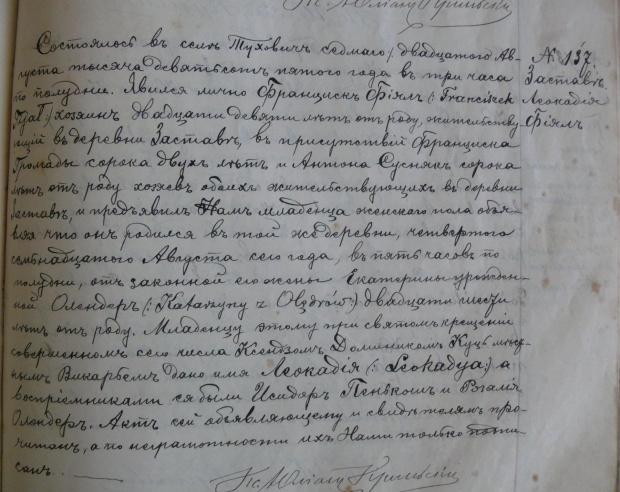 Состоялось въ селѣ Туховичъ седмаго / двадцатого Ав-
густа тысяча девятьсотъ пятого года въ три часа
по полудни. Явился лично Францискъ Фіялъ (: Franciszek
Fijał :) хозяинъ двадцати девяти лѣтъ отъ роду, жительству-
ющій въ деревни Заставкѣ, въ присутствіи Франциска
Громады сорока двухъ лѣтъ и Антона Суснякъ сорока
лѣтъ отъ роду хозяевъ обоихъ жительствующихъ въ деревни
Заставкѣ, и предъявилъ Намъ младенца женского пола объя-
вляя что онъ родился въ той же деревни, четвертого
семнадцатого Августа сего года, въ пять часовъ по
полудни, отъ законной его жены Екатерины урожден-
ной Олендеръ (: Katarzyny z :) двадцати шести
лѣтъ отъ роду. Младенцу этому при святомъ крещеніи
совершенномъ сего числа Ксендзомъ Доминикомъ мѣст-
нымъ Викарьемъ дано имя Леокадія (: Leokadya :) а
воспріемниками ея были Исидоръ и
Олендеръ. Актъ сей объявляющему и свидѣтелямъ про-
читанъ, а по неграмотности ихъ Нами только подпи-
санъ.
№ 137.
Заставкѣ
Леокадія
Фіялъ